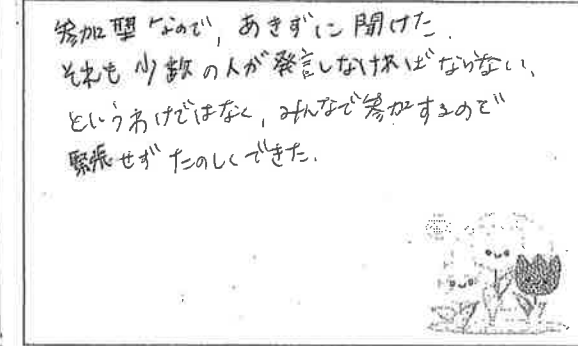 参加型なので、あきずに聞けた.
それも少数の人が発言しなければならない、
というわけではなく、みんなで参加するので
緊張せずたのしくできた.